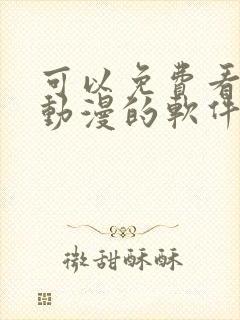 可以免費看
動漫的軟件
微甜酥酥